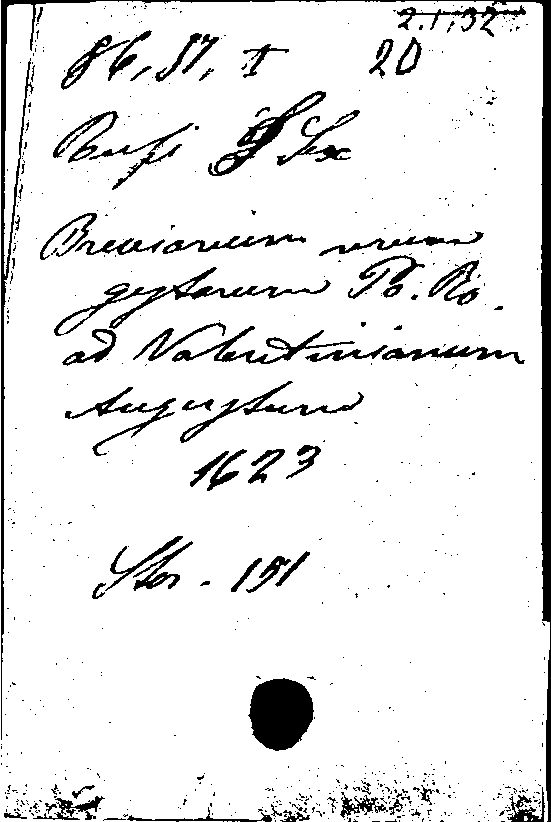 2.1.32
86,87, I 20
Rufi S Sex
Breviarium rerum
gestarum Po. Ro.
ad Valentinianum
Augustum
1623
Hor. - 151